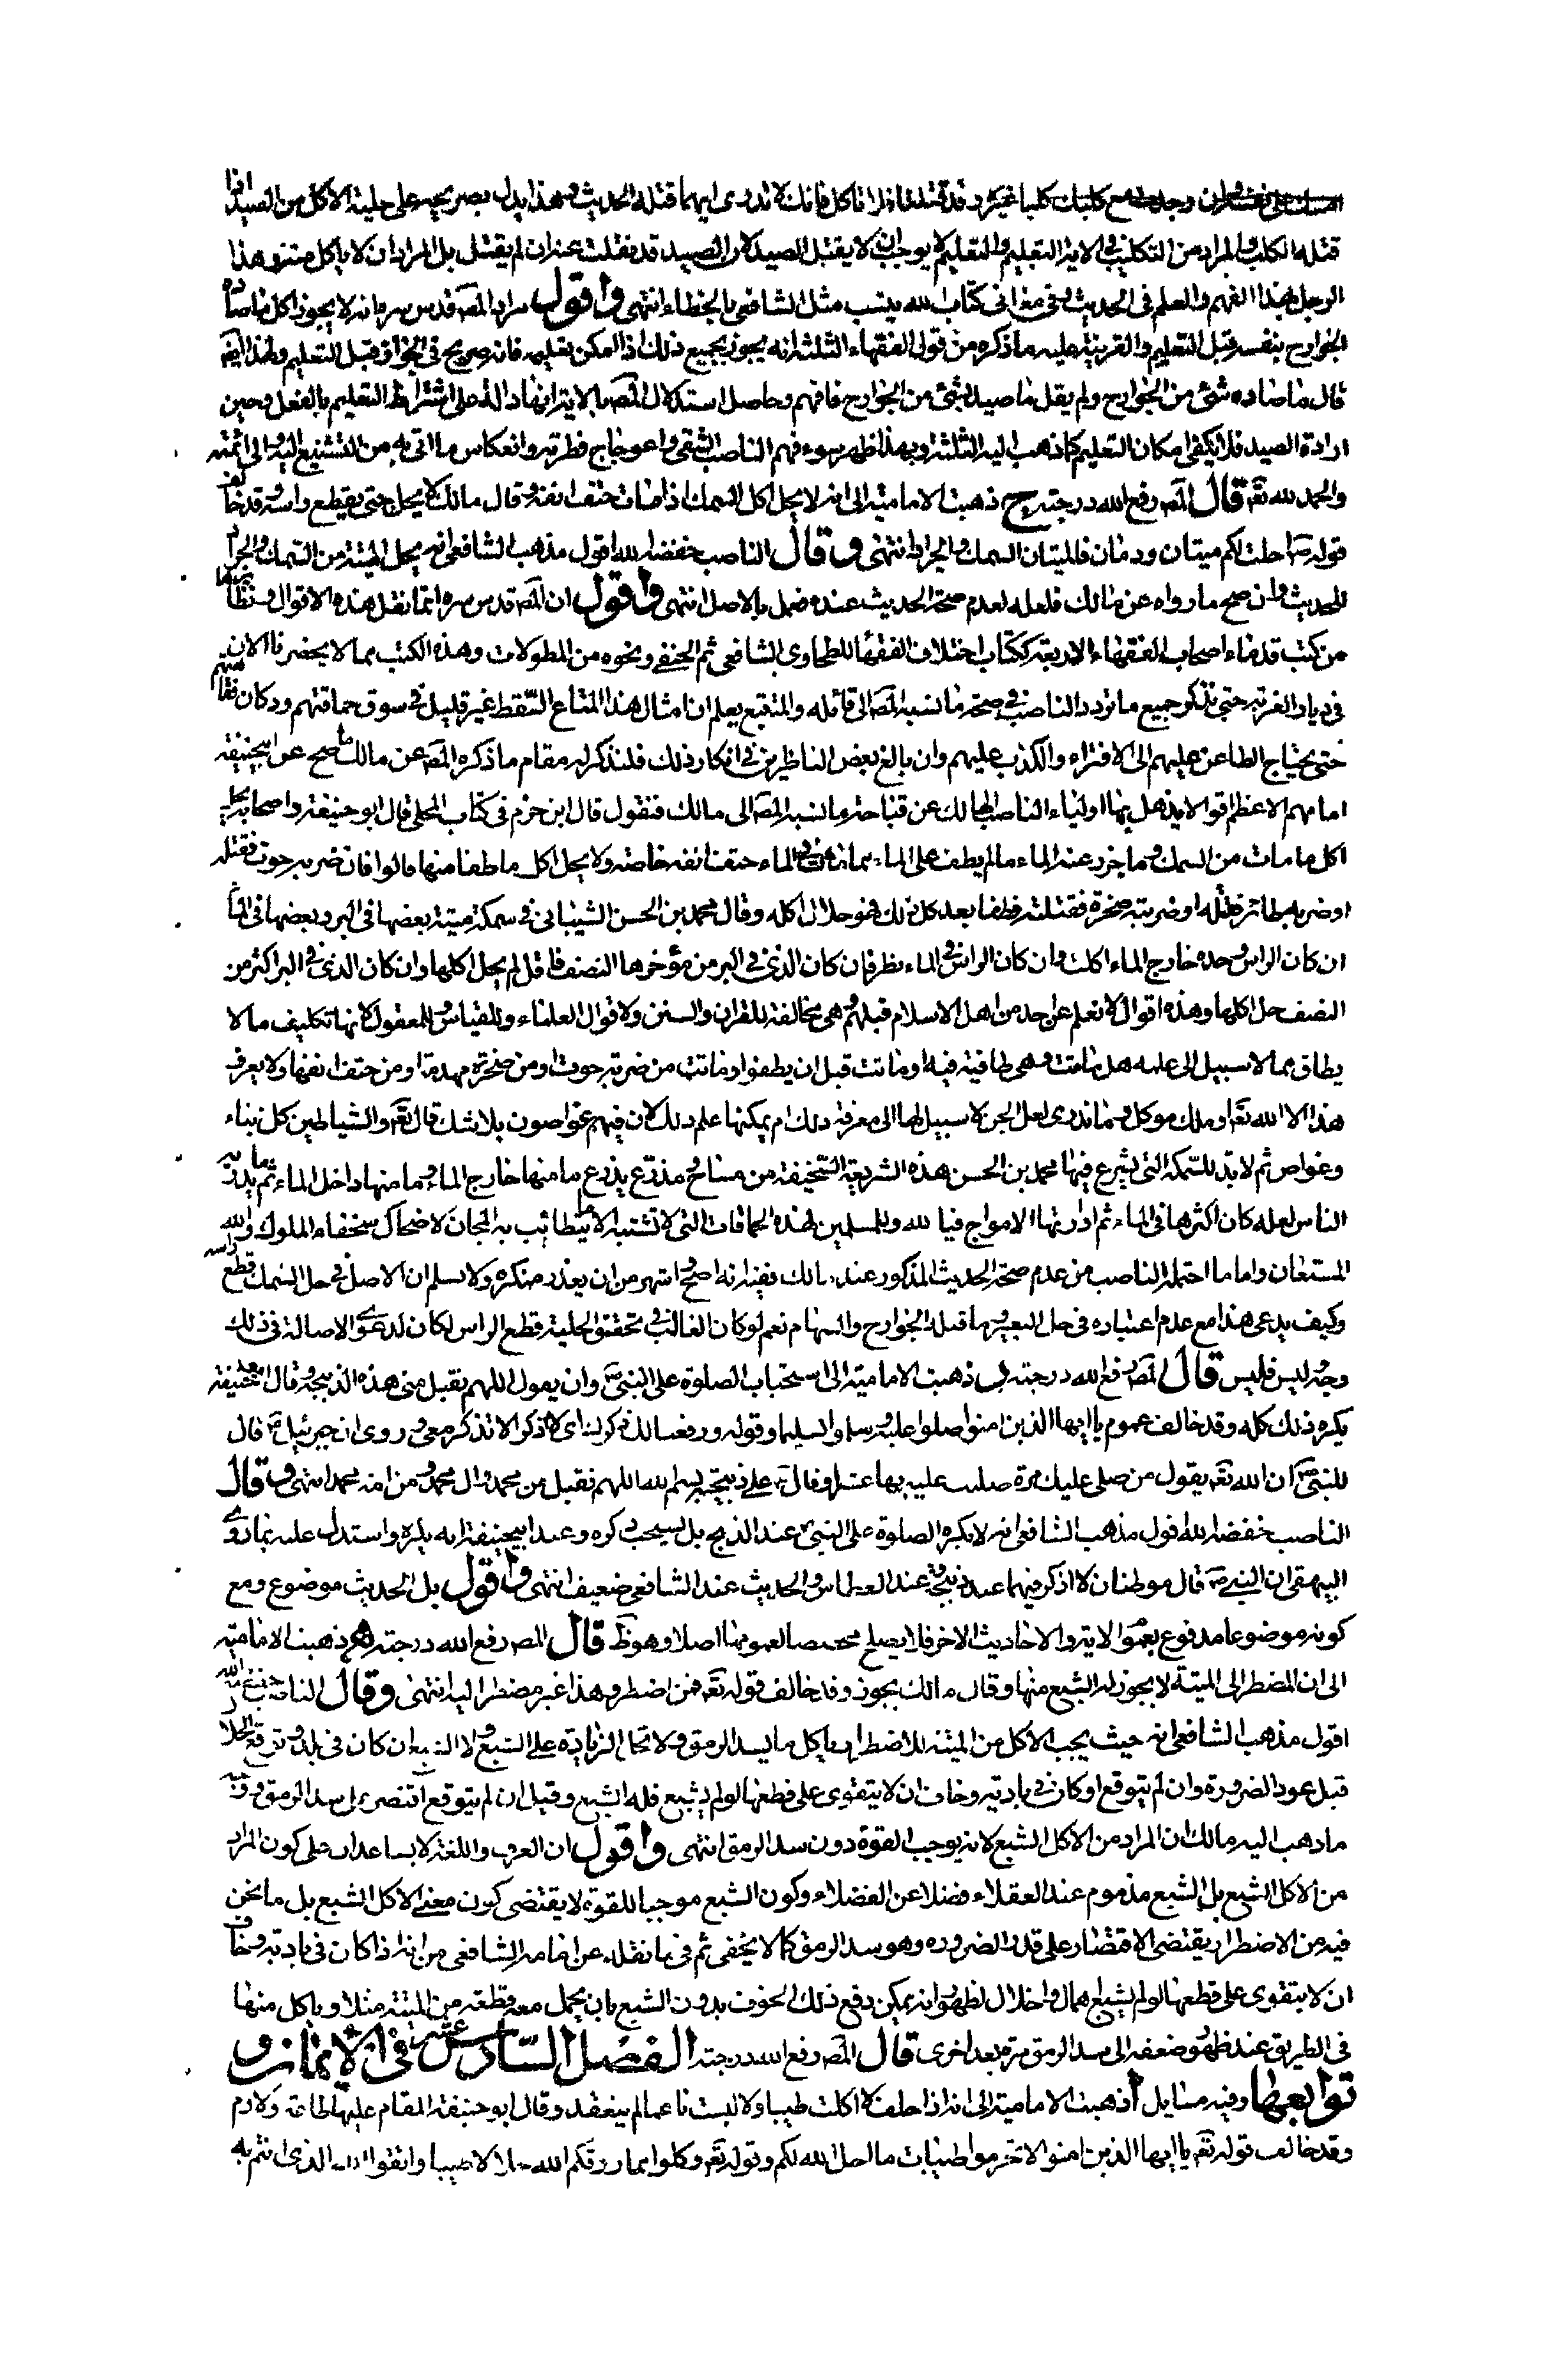 امسك على نفسه وان وجدت مع كلبك كلبا غيره وقد قتله فلا تاكل فانك لا تدرى ايهما قتله الحديث وهذا يدل بصريحه على حلية الاكل من الصيد اذا
قتله الكلب والمراد من التكليب فى الاية التعليم والتعليم لا يوجب ان لا يقتل الصيد لان الصيد قد يفلت عنه ان لم يقتل بل المراد ان لا ياكل منه وهذا
الرجل بهذا الفهم والعلم فى الحديث وفى معانى كتاب الله ينسب مثل الشافعى بالخطاء انتهى واقول مراد المص قدس سره انه لا يجوز اكل ما صاده
الجوارح بنفسه قبل التعليم والقرينة عليه ما ذكره من قول الفقهاء الثلثة انه يجوز بجميع ذلك اذا امكن تعليمه فانه صريح فى الجواز قبل التعليم ولهذا ايضا
قال ما صاده شئ من الجوارح ولم يقل ما صيد بشئ من الجوارح فافهم وحاصل استدلال المص بالاية انها دالة على اشتراط التعليم بالفعل وحين
ارادة الصيد فلا يكفى امكان التعليم كما ذهب اليه الثلثة وبهذا ظهر سوء فهم الناصب الشقى واعوجاج فطرته وانعكاس ما اتى به من التشنيع اليه والى ائمته
والحمد لله تع قال المص رفع الله درجته ج ذهبت الامامية الى انه لا يحل اكل السمك اذا مات حتف انفه وقال مالك لا يحل حتى يقطع راسه وقد خالف
قوله ص احلت لكم ميتتان ودمان فالميتتان السمك والجراد انتهى وقال الناصب خفضه الله اقول مذهب الشافعى انه يحل الميتة من السمك والجراد
للحديث وان صح ما رواه عن مالك فلعله لعدم صحة الحديث عنده فعمل بالاصل انتهى واقول ان المص قدس سره انما نقل هذه الاقوال ونظائرها
من كتب قدماء اصحاب الفقهاء الاربعة ككتاب اختلاف الفقهاء للطحاوى الشافعى ثم الحنفى ونحوه من المطولات وهذه الكتب مما لا يحضرنا الان
فى ديار الغربة حتى نذكر جميع ما تردد الناصب فى صحة ما نسبه المص الى قائله والمتتبع يعلم ان امثال هذا المتاع السقط غير قليل فى سوق حماقتهم ودكان فقاهتهم
حتى يحتاج الطاعن عليهم الى الافتراء والكذب عليهم وان بالغ بعض الناظرين فى انكار ذلك فلنذكر له مقام ما ذكره المص عن مالك ما صح عن ابيحنيفة
امامهم الاعظم اقوالا يذهل بها اولياء الناصب الهالك عن قباحة ما نسبه المص الى مالك فنقول قال ابن حزم فى كتاب المحلى قال ابو حنيفة واصحابه يحل
اكل ما مات من السمك وما جزر عنه الماء ما لم يطف على الماء مما مات فى الماء حتف انفه خاصة ولا يحل اكل ما طفا منها قالوا فان ضربه حوت فقتله
او ضربه طائر فقتله او ضربته صخرة فقتلته فطفا بعد كل ذلك فهو حلال اكله وقال محمد بن الحسن الشيبانى فى سمكة ميتة بعضها فى البر وبعضها فى الماء
ان كان الراس وحده خارج الماء اكلت وان كان الراس فى الماء نظر فان كان الذى فى البر من مؤخرها النصف فاقل لم يحل اكلها وان كان الذى فى البر اكثر من
النصف حل اكلها وهذه اقوال لا تعلم عن احد من اهل الاسلام قبلهم وهى مخالفة للقران والسنن ولاقوال العلماء وللقياس وللمعقول لانها تكليف ما لا
يطاق مما لا سبيل الى علمه هل ماتت وهى طافية فيه او ماتت قبل ان يطفو او ماتت من ضربة حوت او من صخرة مهدمة او من حتف انفها ولا يعرف
هذا الا الله تع او ملك موكل وما ندرى لعل الجن لا سبيل لها الى معرفة ذلك ام يمكنها علم ذلك لان فيهم غواصون بلا شك قال تع والشياطين كل بناء
وغواص ثم لا بد للسمكة التى شرع فيها محمد بن الحسن هذه الشريعة السخيفة من مساح مذرع يذرع ما منها خارج الماء وما منها داخل الماء ثم ما يدريه
الناس لعله كان اكثرها فى الماء ثم ادارتها الامواج فيا لله وللمسلمين لهذه الحماقات التى لا تشبه الا ما يتطائب به المجان لاضحاك سخفاء الملوك والله
المستعان واما ما احتمله الناصب من عدم صحة الحديث المذكور عند مالك ففيه انه اصح واشهر من ان يعذر منكره ولا نسلم ان الاصل فى حل السمك قطع راسه
وكيف يدعى هذا مع عدم اعتباره فى حل البعير وما قتله الجوارح والسهام نعم لو كان الغالب فى تحقق الحلية قطع الراس لكان لدعوى الاصالة فى ذلك
وجه وليس فليس قال المص رفع الله درجته د ذهبت الامامية الى استحباب الصلوة على النبى ص وان يقول اللهم تقبل منى هذه الذبيحة وقال ابوحنيفة
يكره ذلك كله وقد خالف عموم يا ايها الذين امنوا صلوا عليه وسلموا تسليما وقوله ورفعنا لك ذكرك اى لا اذكر الا تذكر معى وروى ان جبرئيل ع قال
للنبى ص ان الله تع يقول من صلى عليك مرة صليت عليه بها عشرا وقال ع على ذبيحته بسم الله اللهم تقبل من محمد وال محمد ومن امة محمد انتهى وقال
الناصب خفضه الله اقول مذهب الشافعى انه لا يكره الصلوة على النبى ص عند الذبح بل يستحب ذكره وعند ابيحنيفة انه يكره واستدل عليه بما روى
البيهقى ان النبى ص قال موطنان لا اذكر فيهما عند الذبيحة وعند العطاس والحديث عند الشافعى ضعيف انتهى واقول بل الحديث موضوع ومع
كونه موضوعا مدفوع بعموم الاية والاحاديث الاخر فلا يصلح مخصصا لعمومها اصلا وهو ظ قال المص رفع الله درجته ه ذهبت الامامية
الى ان المضطر الى الميتة لا يجوز له الشبع منها وقال مالك يجوز وقد خالف قوله تع فمن اضطر وهذا غير مضطر اليه انتهى وقال الناصب خفضه الله
اقول مذهب الشافعى انه حيث يجب الاكل من الميتة للاضطرار ياكل ما يسد الرمق ولا تحل الزيادة على الشبع ولا الشبع ان كان فى بلد وتوقع الحلال
قبل عود الضرورة وان لم يتوقع او كان فى بادية وخاف ان لا يتقوى على قطعها لو لم يشبع فله الشبع وقيل ان لم يتوقع اقتصر على سد الرمق ووجه
ما ذهب اليه مالك ان المراد من الاكل الشبع لانه يوجب القوة دون سد الرمق انتهى واقول ان العرف واللغة لا يساعدان على كون المراد
من الاكل الشبع بل الشبع مذموم عند العقلاء فضلا عن الفضلاء وكون الشبع موجبا للقوة لا يقتضى كون معنى الاكل الشبع بل ما نحن
فيه من الاضطرار يقتضى الاقتصار على قدر الضرورة وهو سد الرمق كما لا يخفى ثم فى ما نقله عن امامه الشافعى من انه اذا كان فى بادية وخاف
ان لا يتقوى على قطعها لو لم يشبع اهمال واخلال لظهور انه يمكن دفع ذلك الخوف بدون الشبع بان يحمل معه قطعة من الميتة مثلا وياكل منها
فى الطريق عند ظهور ضعفه الى سد الرمق مرة بعد اخرى قال المص رفع الله درجته الفصل السادس عشر فى الايمان و
توابعها وفيه مسايل أ ذهبت الامامية الى انه اذا حلف لا اكلت طيبا ولا لبست ناعما لم ينعقد وقال ابو حنيفة المقام عليها طاعة ولازم
وقد خالف قوله تع يا ايها الذين امنوا لا تحرموا طيبات ما احل الله لكم وقوله تع وكلوا مما رزقكم الله حلالا طيبا واتقوا الله الذى انتم به